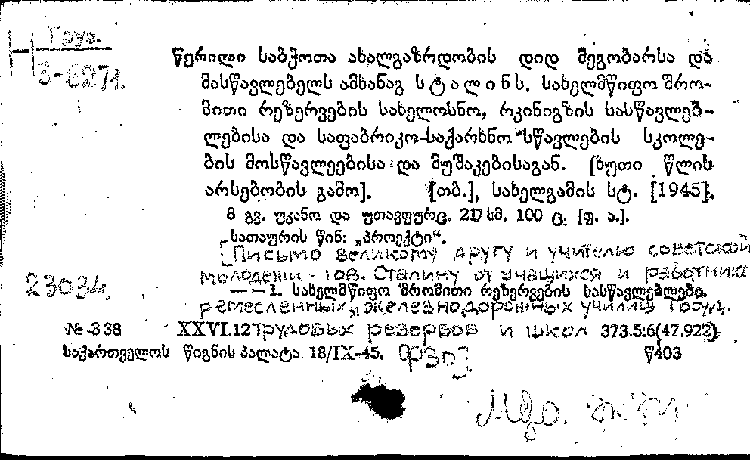 Груз.
3-6271.
წერილი საბჭოთა ახალგაზრდობის დიდ მეგობარსა და
მასწავლებელს ამხანაგ სტალინს. სახელმწიფო შრო-
მითი რეზერვების სახელოსნო, რკინიგზის სასწავლებ-
ლებისა და საფაბრიკო-საქარხნო სწავლების სკოლე-
ბის მოსწავლეებისა და მუშაკებისაგან. [ხუთი წლის
არსებობის გამო]. [თბ.], სახელგამის სტ. [1945].
8 გვ. უკანო და უთავფურც. 21 სმ. 100 ც. [უ. ა.].
სათაურის წინ: „პროექტი“.
[Письмо великому другу и учителю советской
молодежи - тов. Сталину от учащихся и работников
23034.
— — 1. სახელმწიფო შრომითი რეზერვების სასწავლებლები.
ремесленных, железнодорожных училищ Госуд.
№ 338 XXVI.12 трудовых резервов и школ 373.5:6(47.922)
საქართველოს წიგნის პალატა 18/IX-45. ФЗО] წ403